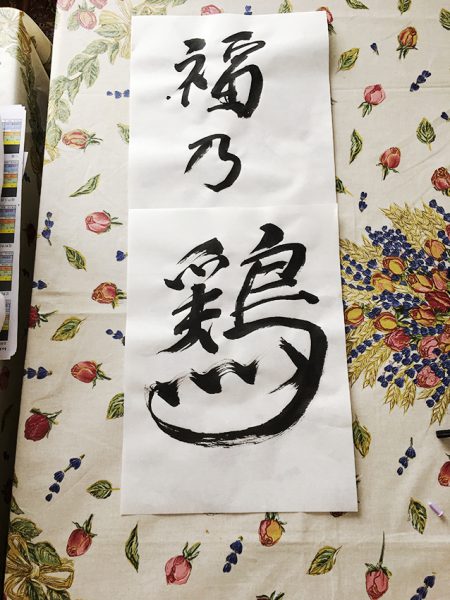 福
乃
鶏